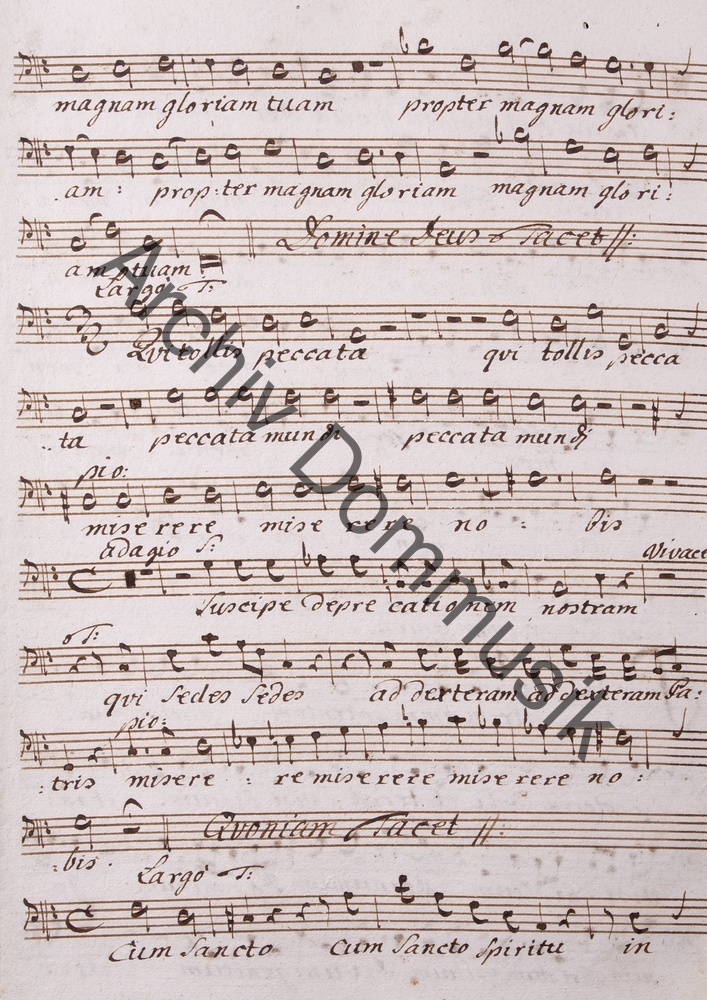 magnam gloriam tuam propter magnam glori:
am: prop:ter magnam gloriam magnam glori:
Domine Deus Tacet
am tuam
Largo T:
Qui tollis peccata qui tollis pecca
ta peccata mundi peccata mundi
pio:
miserere miserere no: bis
adagio S: Vivace
Suscipe deprecationem nostram
T:
qui sedes sedes ad dexteram ad dexteram Pa:
pio:
:tris misere: re miserere miserere no:
Quoniam Tacet
:bis.
Largo T:
Cum Sancto Cum Sancto Spiritu in
Archiv Dommusik